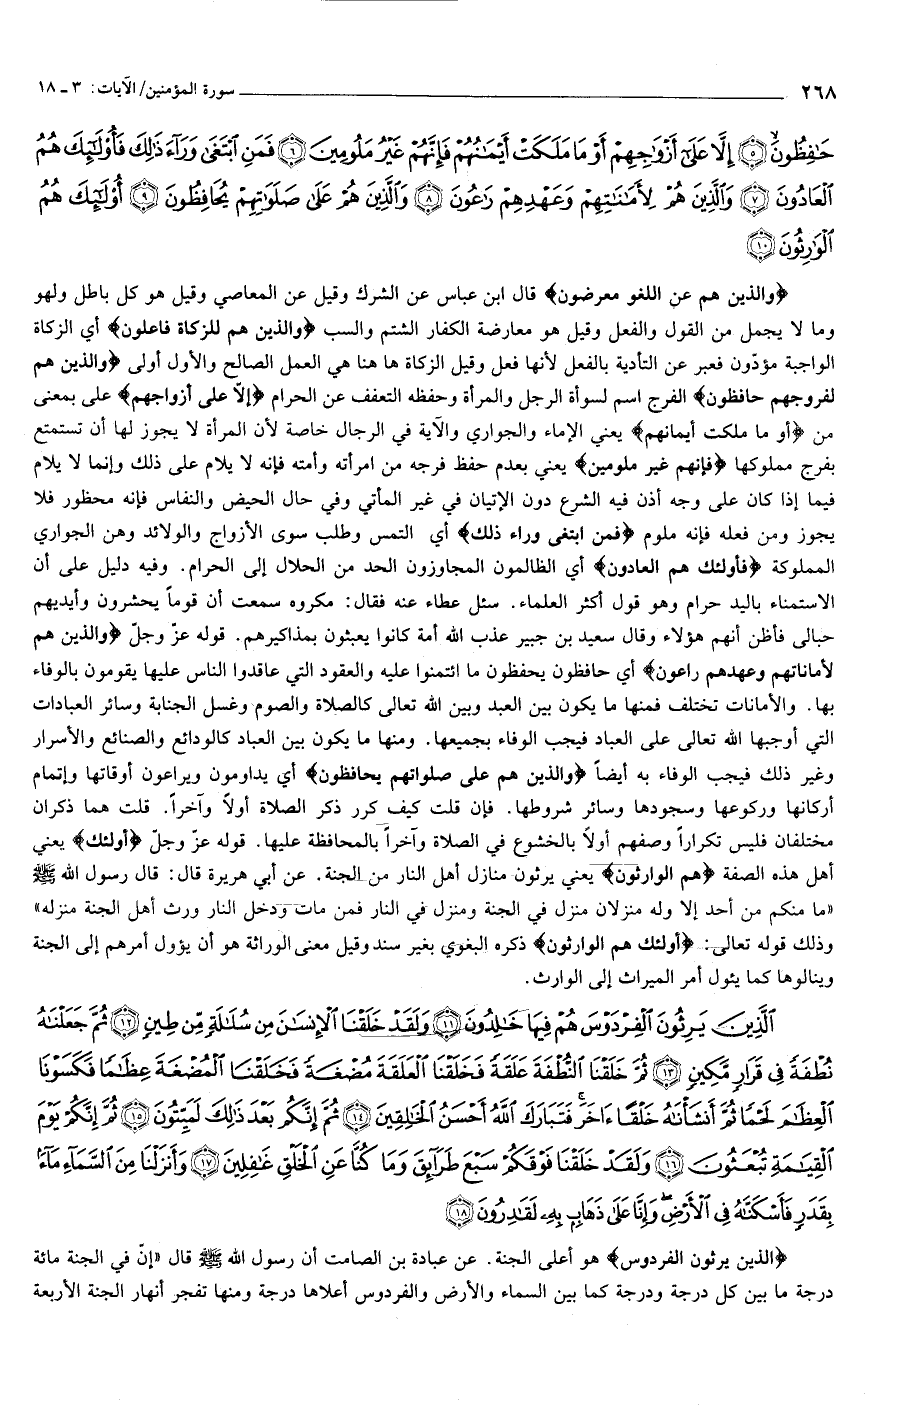 ٢٦٨ سورة المؤمنين/ الآيات: ٣ ـ ١٨
حَٰفِظُونَۙ ٥ إِلَّا عَلَىٰٓ أَزْوَٰجِهِمْ أَوْ مَا مَلَكَتْ أَيْمَٰنُهُمْ فَإِنَّهُمْ غَيْرُ مَلُومِينَ ٦ فَمَنِ ٱبْتَغَىٰ وَرَآءَ ذَٰلِكَ فَأُو۟لَٰٓئِكَ هُمُ
ٱلْعَادُونَ ٧ وَٱلَّذِينَ هُمْ لِأَمَٰنَٰتِهِمْ وَعَهْدِهِمْ رَٰعُونَ ٨ وَٱلَّذِينَ هُمْ عَلَىٰ صَلَوَٰتِهِمْ يُحَافِظُونَ ٩ أُو۟لَٰٓئِكَ هُمُ
ٱلْوَٰرِثُونَ ١٠
﴿والذين هم عن اللغو معرضون﴾ قال ابن عباس عن الشرك وقيل عن المعاصي وقيل هو كل باطل ولهو
وما لا يجمل من القول والفعل وقيل هو معارضة الكفار الشتم والسب ﴿والذين هم للزكاة فاعلون﴾ أي الزكاة
الواجبة مؤدّون فعبر عن التأدية بالفعل لأنها فعل وقيل الزكاة ها هنا هي العمل الصالح والأول أولى ﴿والذين هم
لفروجهم حافظون﴾ الفرج اسم لسوأة الرجل والمرأة وحفظه التعفف عن الحرام ﴿إلاّ على أزواجهم﴾ على بمعنى
من ﴿أو ما ملكت أيمانهم﴾ يعني الإماء والجواري والآية في الرجال خاصة لأن المرأة لا يجوز لها أن تستمتع
بفرج مملوكها ﴿فإنهم غير ملومين﴾ يعني بعدم حفظ فرجه من امرأته وأمته فإنه لا يلام على ذلك وإنما لا يلام
فيما إذا كان على وجه أذن فيه الشرع دون الإتيان في غير المأتي وفي حال الحيض والنفاس فإنه محظور فلا
يجوز ومن فعله فإنه ملوم ﴿فمن ابتغى وراء ذلك﴾ أي التمس وطلب سوى الأزواج والولائد وهن الجواري
المملوكة ﴿فأولئك هم العادون﴾ أي الظالمون المجاوزون الحد من الحلال إلى الحرام. وفيه دليل على أن
الاستمناء باليد حرام وهو قول أكثر العلماء. سئل عطاء عنه فقال: مكروه سمعت أن قوماً يحشرون وأيديهم
حبالى فأظن أنهم هؤلاء وقال سعيد بن جبير عذب الله أمة كانوا يعبثون بمذاكيرهم. قوله عزّ وجلّ ﴿والذين هم
لأماناتهم وعهدهم راعون﴾ أي حافظون يحفظون ما ائتمنوا عليه والعقود التي عاقدوا الناس عليها يقومون بالوفاء
بها. والأمانات تختلف فمنها ما يكون بين العبد وبين الله تعالى كالصلاة والصوم وغسل الجنابة وسائر العبادات
التي أوجبها الله تعالى على العباد فيجب الوفاء بجميعها. ومنها ما يكون بين العباد كالودائع والصنائع والأسرار
وغير ذلك فيجب الوفاء به أيضاً ﴿والذين هم على صلواتهم يحافظون﴾ أي يداومون ويراعون أوقاتها وإتمام
أركانها وركوعها وسجودها وسائر شروطها. فإن قلت كيف كرر ذكر الصلاة أولاً وآخراً. قلت هما ذكران
مختلفان فليس تكراراً وصفهم أولاً بالخشوع في الصلاة وآخراً بالمحافظة عليها. قوله عزّ وجلّ ﴿أولئك﴾ يعني
أهل هذه الصفة ﴿هم الوارثون﴾ يعني يرثون منازل أهل النار من الجنة. عن أبي هريرة قال: قال رسول الله ﷺ
«ما منكم من أحد إلا وله منزلان منزل في الجنة ومنزل في النار فمن مات ودخل النار ورث أهل الجنة منزله»
وذلك قوله تعالى: ﴿أولئك هم الوارثون﴾ ذكره البغوي بغير سند وقيل معنى الوراثة هو أن يؤول أمرهم إلى الجنة
وينالوها كما يئول أمر الميراث إلى الوارث.
ٱلَّذِينَ يَرِثُونَ ٱلْفِرْدَوْسَ هُمْ فِيهَا خَٰلِدُونَ ١١ وَلَقَدْ خَلَقْنَا ٱلْإِنسَٰنَ مِن سُلَٰلَةٍ مِّن طِينٍ ١٢ ثُمَّ جَعَلْنَٰهُ
نُطْفَةً فِى قَرَارٍ مَّكِينٍ ١٣ ثُمَّ خَلَقْنَا ٱلنُّطْفَةَ عَلَقَةً فَخَلَقْنَا ٱلْعَلَقَةَ مُضْغَةً فَخَلَقْنَا ٱلْمُضْغَةَ عِظَٰمًا فَكَسَوْنَا
ٱلْعِظَٰمَ لَحْمًا ثُمَّ أَنشَأْنَٰهُ خَلْقًا ءَاخَرَ ۚ فَتَبَارَكَ ٱللَّهُ أَحْسَنُ ٱلْخَٰلِقِينَ ١٤ ثُمَّ إِنَّكُم بَعْدَ ذَٰلِكَ لَمَيِّتُونَ ١٥ ثُمَّ إِنَّكُمْ يَوْمَ
ٱلْقِيَٰمَةِ تُبْعَثُونَ ١٦ وَلَقَدْ خَلَقْنَا فَوْقَكُمْ سَبْعَ طَرَآئِقَ وَمَا كُنَّا عَنِ ٱلْخَلْقِ غَٰفِلِينَ ١٧ وَأَنزَلْنَا مِنَ ٱلسَّمَآءِ مَآءًۢ
بِقَدَرٍ فَأَسْكَنَّٰهُ فِى ٱلْأَرْضِ ۖ وَإِنَّا عَلَىٰ ذَهَابٍۭ بِهِۦ لَقَٰدِرُونَ ١٨
﴿الذين يرثون الفردوس﴾ هو أعلى الجنة. عن عبادة بن الصامت أن رسول الله ﷺ قال «إنّ في الجنة مائة
درجة ما بين كل درجة ودرجة كما بين السماء والأرض والفردوس أعلاها درجة ومنها تفجر أنهار الجنة الأربعة